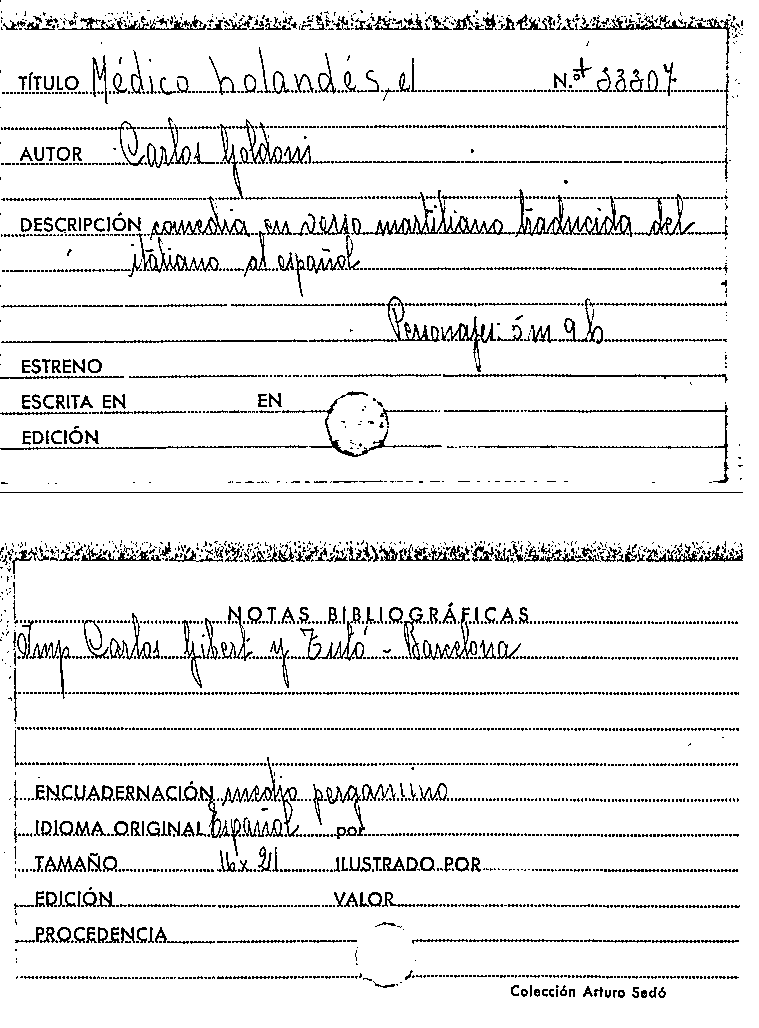 TÍTULO Médico holandés, el N.º 33307
AUTOR Carlos Goldoni
DESCRIPCIÓN comedia en verso martiliano traducida del
italiano al español
Personajes: 5 m 9 h
ESTRENO
ESCRITA EN EN
EDICIÓN
NOTAS BIBLIOGRÁFICAS
Imp Carlos Gibert y Tutó - Barcelona
ENCUADERNACIÓN medio pergamino
IDIOMA ORIGINAL Español por
TAMAÑO 16 x 21 ILUSTRADO POR
EDICIÓN VALOR
PROCEDENCIA
Colección Arturo Sedó